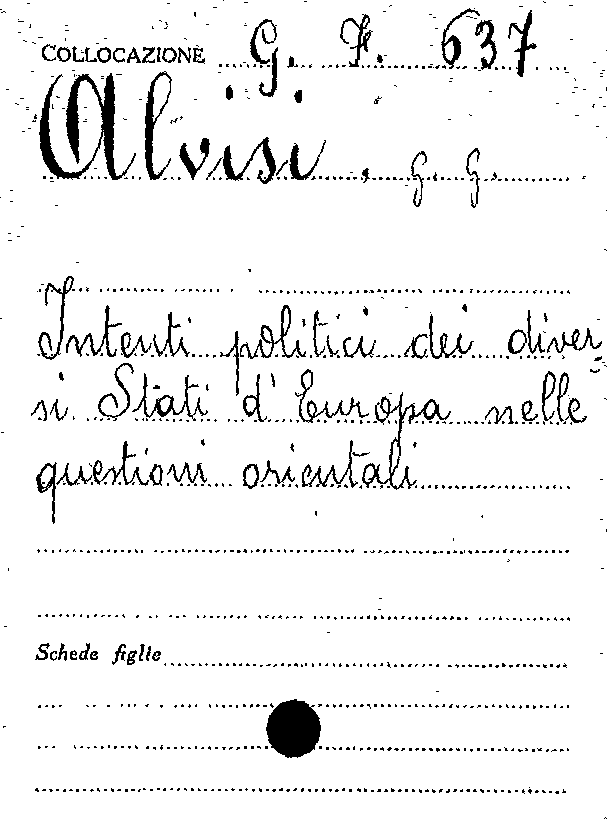 COLLOCAZIONE G. F. 637
Alvisi. G. G.
Intenti politici dei diver=
si Stati d'Europa nelle
questioni orientali
Schede figlie